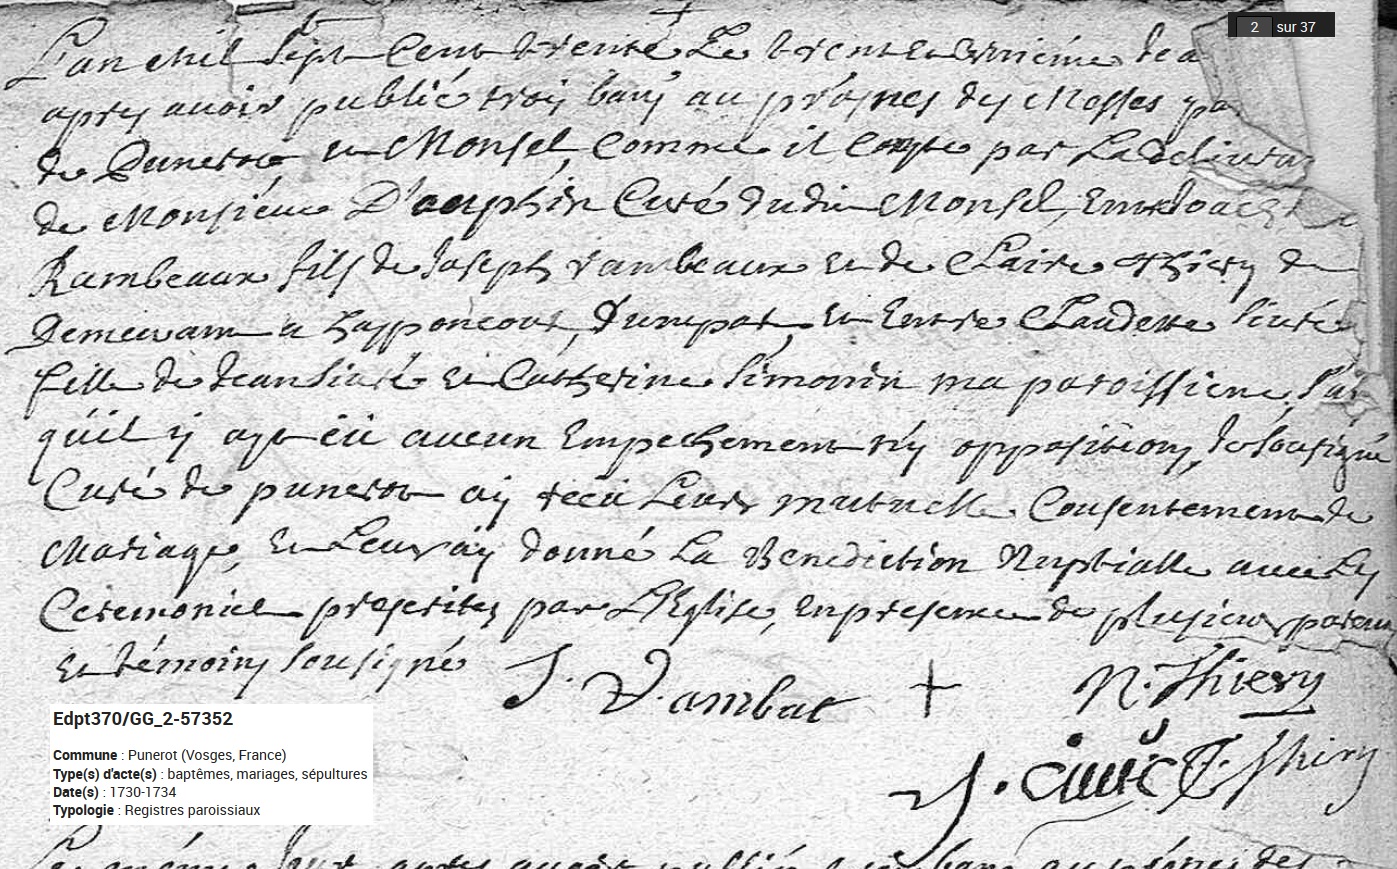 2 sur 37
L'an mil sept cent trente Le trent et unieme de
apres avoir publié trois bans au prosnes des Messes
de Punerot et Monsel, comme il par La
de Monsieur Dauphin Curé dudit Monsel, Entre
Rambeaux fils de Joseph rambeaux et de Claire thiery
a happoncourt, d'une part, et Entre Claudette
fille de Jean et Catherine Simonin ma paroissiene,
qu'il y ayt eü aucun Empechement n'y opposition, Je sousigné
Curé de punerot aÿ receü Leurs mutuelle Consentement de
Mariage, et Leurs aÿ donné La Benediction Nuptialle avec Les
Ceremoniel prescrites par L'Eglise, en presence de plusieurs parens
et témoins sousigné
J. Rambat + N. Thiery
J. Thiery
Edpt370/GG_2-57352
Commune : Punerot (Vosges, France)
Type(s) d'acte(s) : baptêmes, mariages, sépultures
Date(s) : 1730-1734
Typologie : Registres paroissiaux